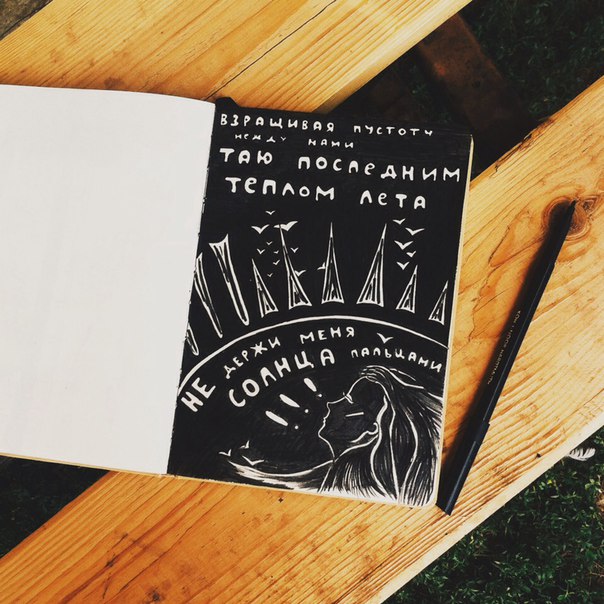 ВЗРАЩИВАЯ ПУСТОТУ
МЕЖДУ НАМИ
ТАЮ ПОСЛЕДНИМ
ТЕПЛОМ ЛЕТА
НЕ ДЕРЖИ МЕНЯ
СОЛНЦА ПАЛЬЦАМИ
!!!